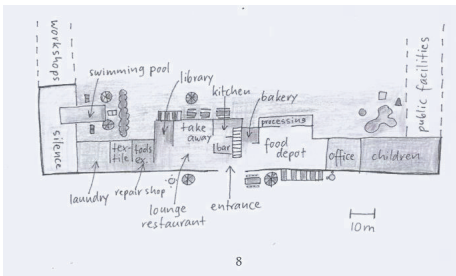 workshops
public facilities
swimming pool
library
kitchen
bakery
take
away
processing
bar
silence
tex-
tile
tools
food
depot
office
children
laundry
repair shop
lounge
restaurant
entrance
10m
8